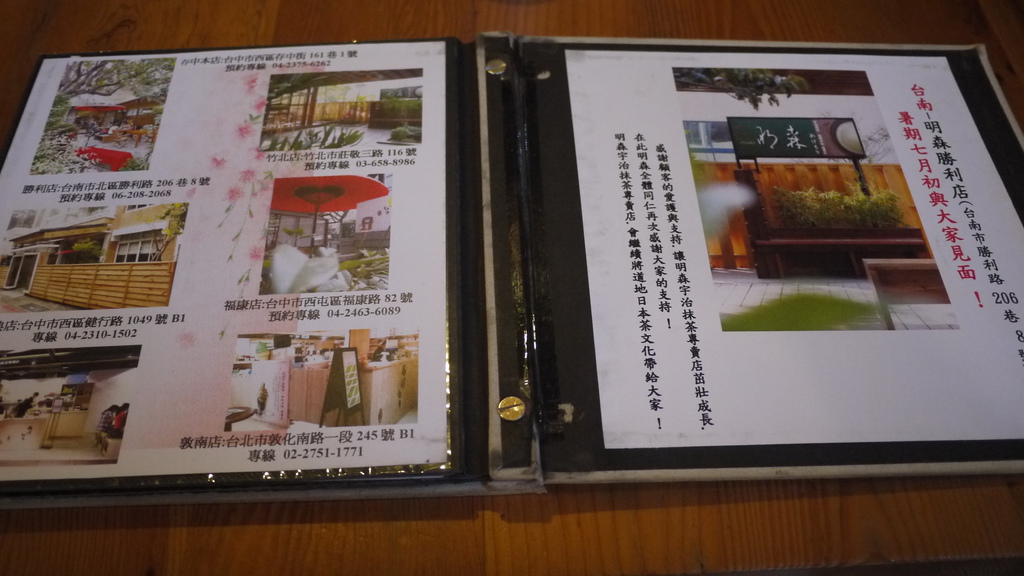 存中本店:台中市西區存中街 161 巷 1 號
預約專線 04-2375-6262
竹北店:竹北市莊敬三路 116 號
預約專線 03-658-8986
勝利店:台南市北區勝利路 206 巷 8 號
預約專線 06-208-2068
福康店:台中市西屯區福康路 82 號
預約專線 04-2463-6089
店:台中市西區健行路 1049 號 B1
專線 04-2310-1502
敦南店:台北市敦化南路一段 245 號 B1
專線 02-2751-1771
台南-明森勝利店(台南市勝利路 206 巷 8 號
暑期七月初與大家見面 !
明森
感謝顧客的愛護與支持 讓明森宇治抹茶專賣店茁壯成長
在此明森全體同仁再次感謝大家的支持 !
明森宇治抹茶專賣店 會繼續將道地日本茶文化帶給大家 !